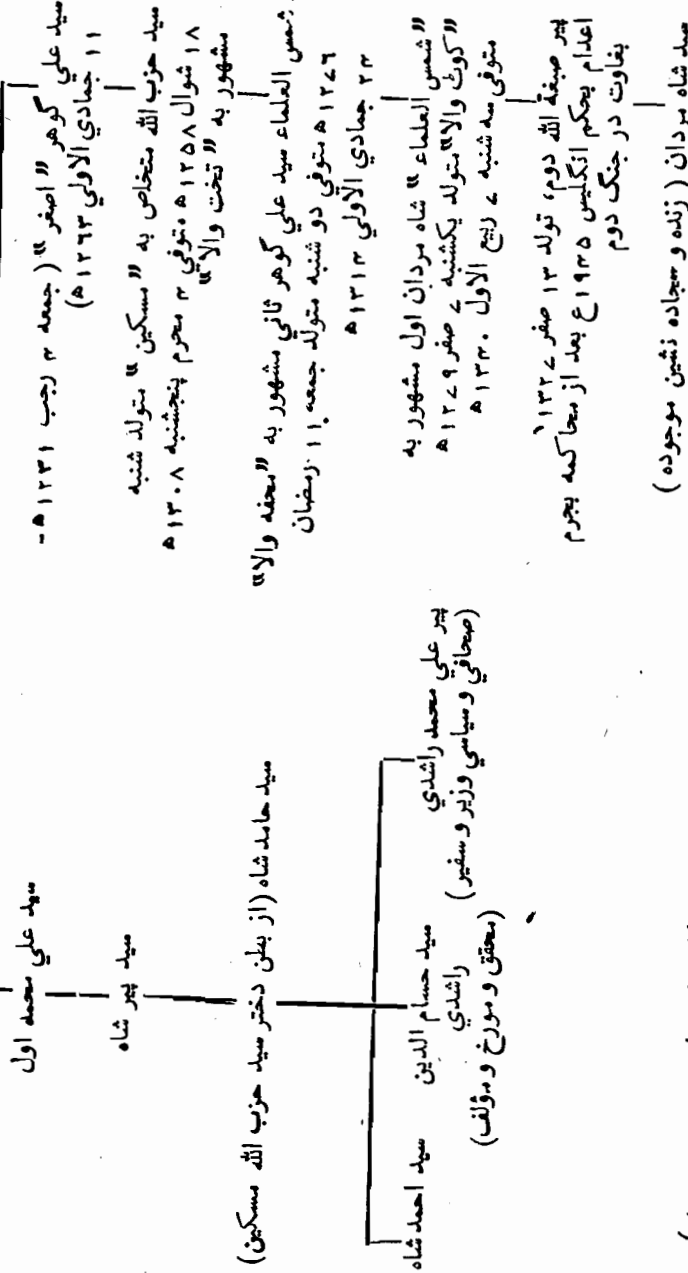 سید علی گوهر "اصغر" (جمعه ۴ رجب ۱۲۳۱ ه‍ -
۱۱ جمادی الاولی ۱۲۶۳ ه‍)
سید حزب الله متخلص به "مسکین" متولد شنبه
۱۸ شوال ۱۲۵۸ ه‍ متوفی ۴ محرم پنجشنبه ۱۳۰۸ ه‍
مشهور به "تخت والا"
شمس العلماء سید علی گوهر ثانی مشهور به "محفه والا"
متولد جمعه ۱۱ رمضان
۱۲۷۹ ه‍ متوفی دو شنبه
۲۳ جمادی الاولی ۱۳۱۴ ه‍
"شمس العلماء" شاه مردان اول مشهور به
"کوٹ والا" متولد یکشنبه ۷ صفر ۱۲۷۹ ه‍
متوفی سه شنبه ۷ ربیع الاول ۱۳۴۰ ه‍
پیر صبغة الله دوم، تولد ۱۳ صفر ۱۳۲۷
اعدام بحکم انگلیس ۱۹۴۵ع بعد از محاکمه بجرم
بغاوت در جنگ دوم
سید شاه مردان (زنده و سجاده نشین موجوده)
سید علی محمد اول
سید پیر شاه
سید حامد شاه (از بطن دختر سید حزب الله مسکین)
پیر علی محمد راشدی
(صحافی و سیاسی وزیر و سفیر)
سید حسام الدین
راشدی
(محقق و مورخ و مؤلف)
سید احمد شاه